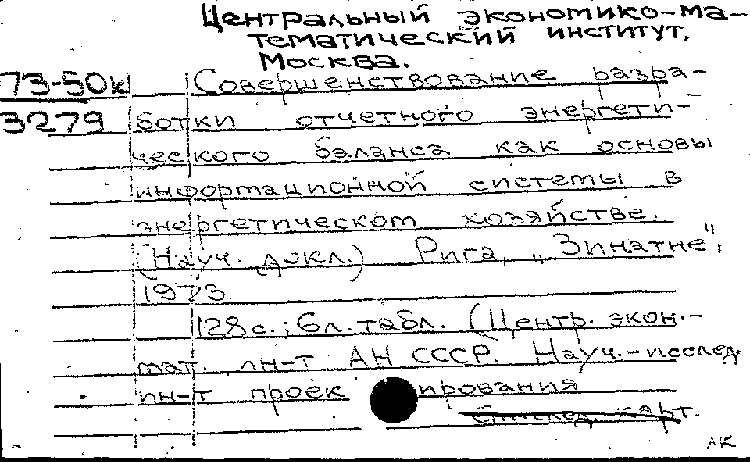 Центральный экономико-ма-
тематический институт,
Москва.
73-50к Совершенствование разра-
3279 ботки отчетного энергети-
ческого баланса как основы
информационной системы в
энергетическом хозяйстве.
(Науч. докл.) Рига, „Зинатне",
1973
128 с.; 6 л. табл. (Центр. экон.-
мат. ин-т АН СССР. Науч.-исслед.
ин-т проектирования
карт.
АК